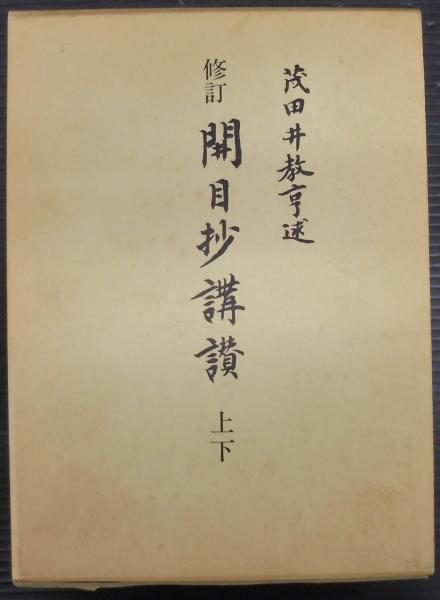 茂田井教亨述
修訂 開目抄講讃 上下